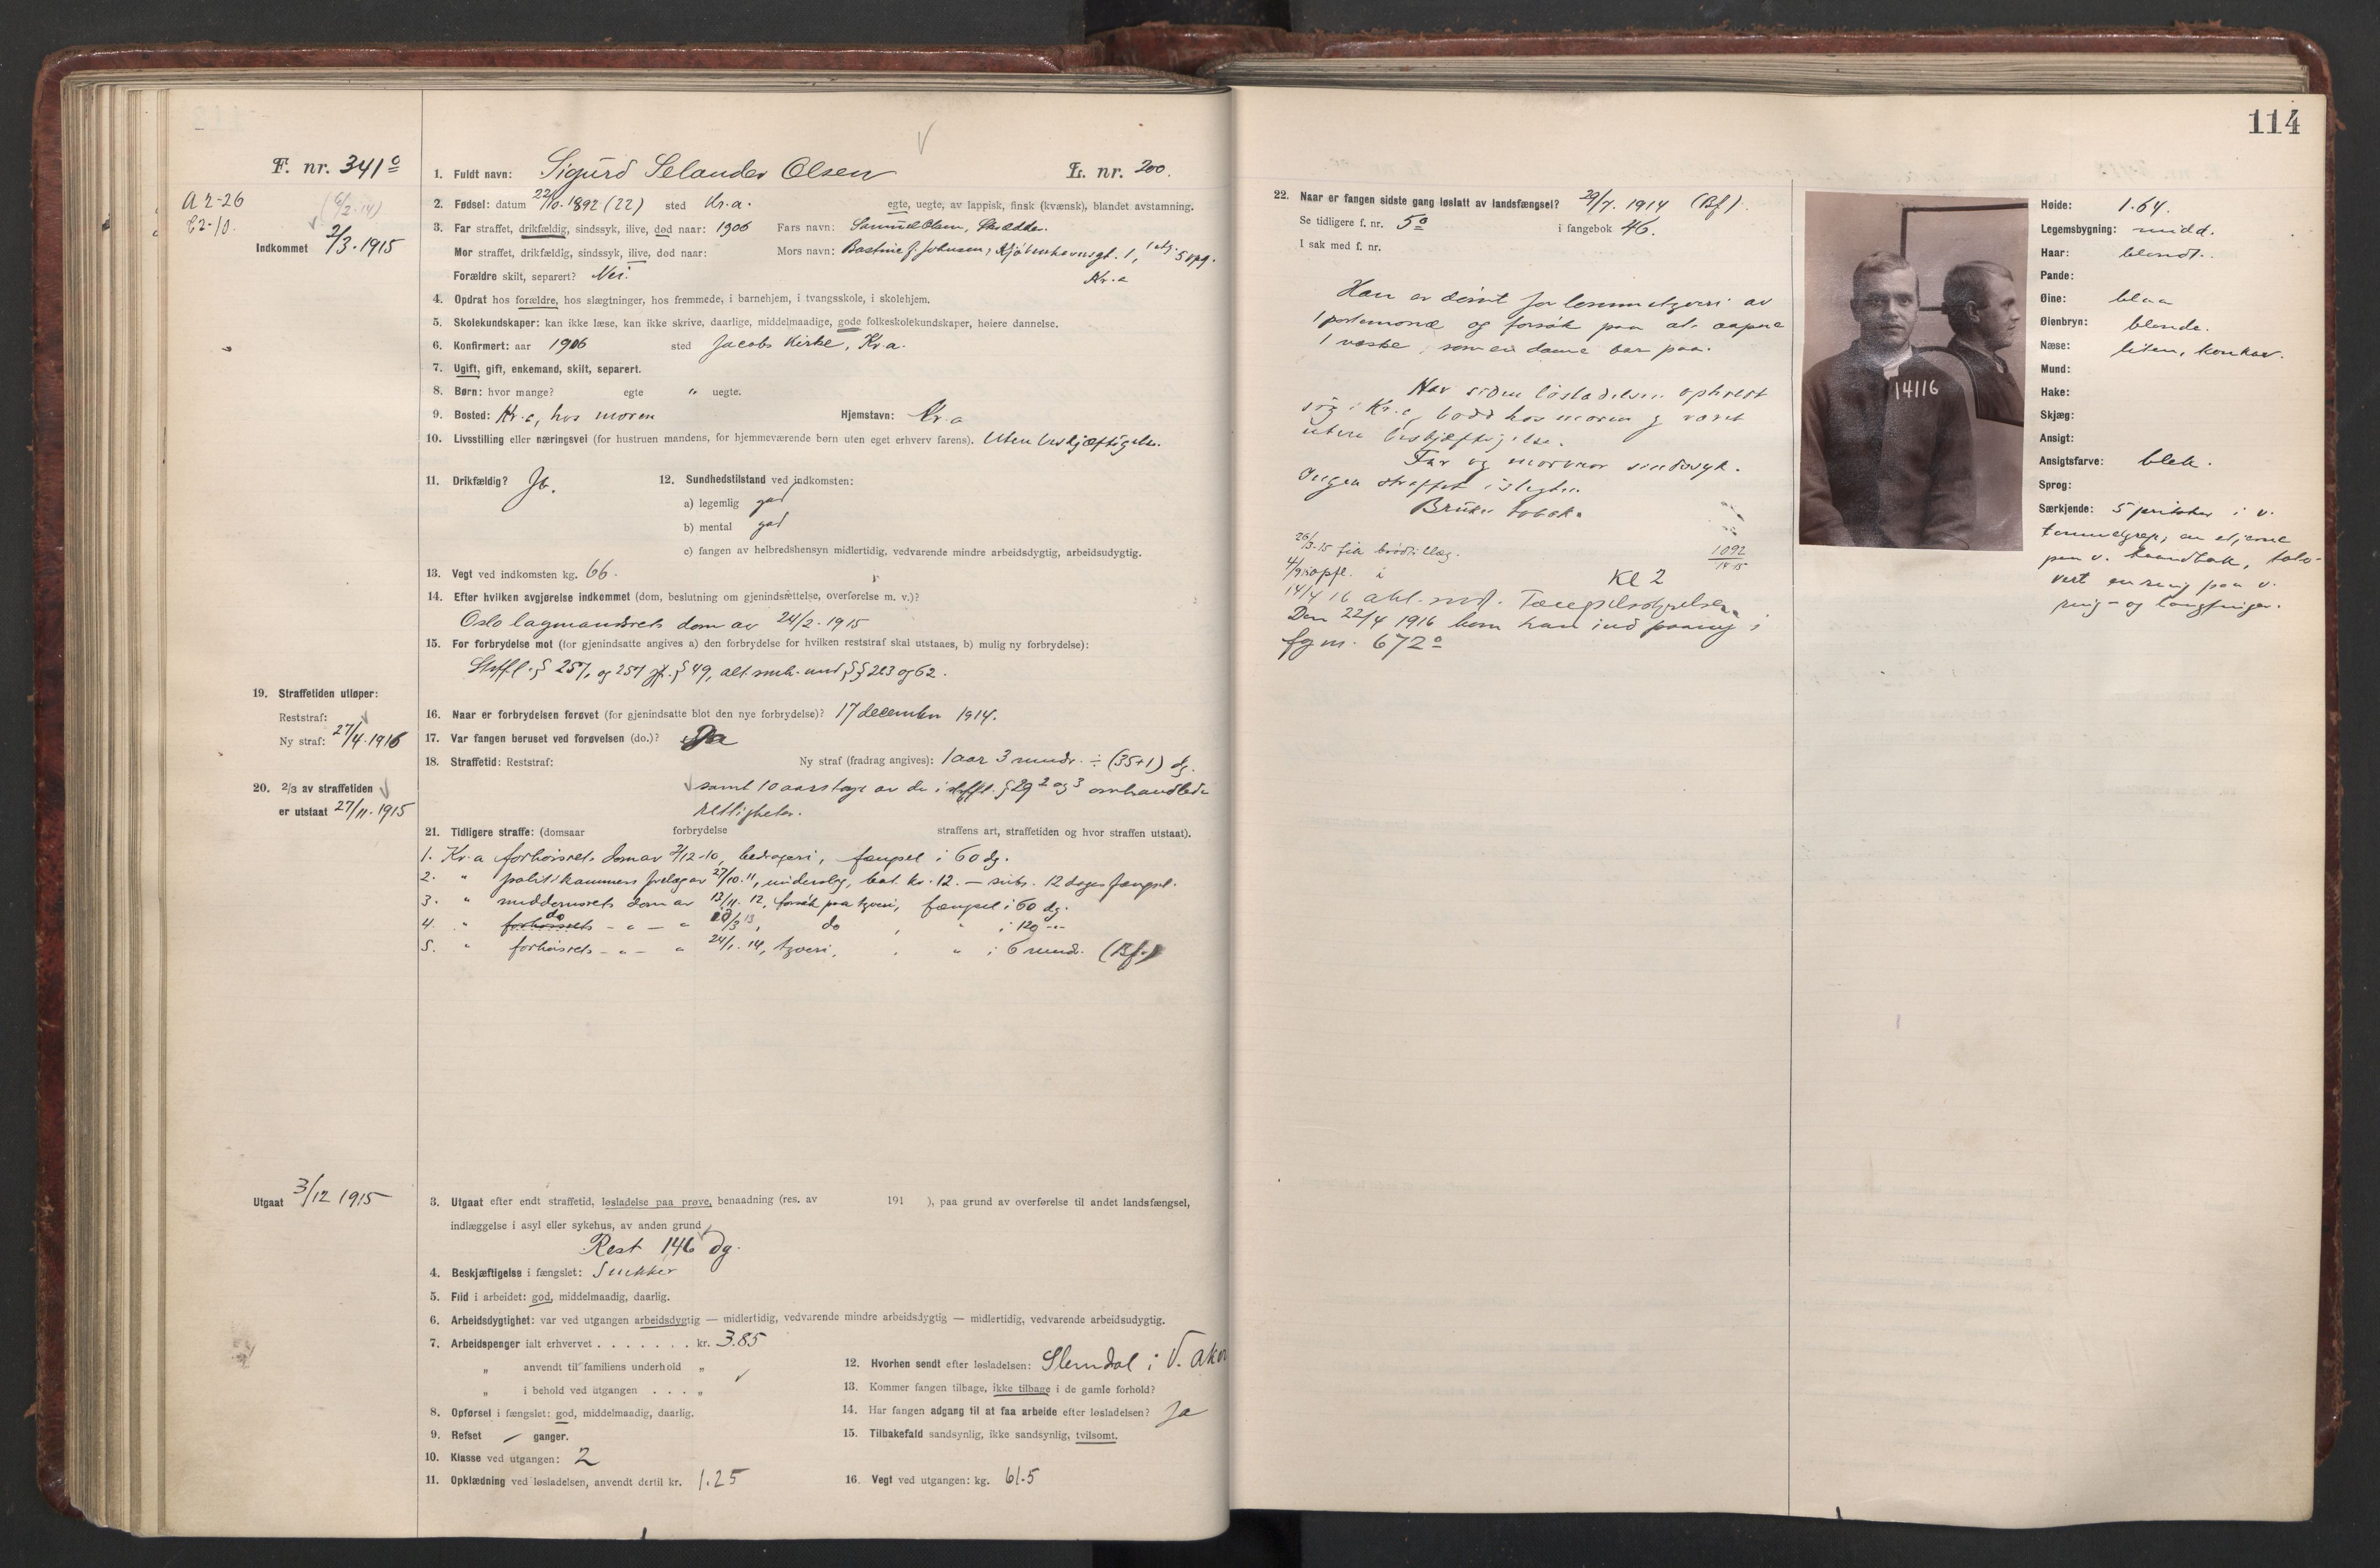 F. nr. 341º
A 2-26
C2-10.
Indkommet 2/3. 1915
1. Fuldt navn: Sigurd Selander Olsen
L. nr. 200.
2. Fødsel: datum 22/10. 1892 (22) sted Kr.a. egte, uegte, av lappisk, finsk (kvænsk), blandet avstamning.
3. Far straffet, drikfældig, sindssyk, ilive, død naar: 1906 Fars navn: Samuel Olsen,
Mor straffet, drikfældig, sindssyk, ilive, død naar: Mors navn: Bastine J. Johnsen, Kjøbenhavnsgt. 1, 5 opg.
Kr.a
Forældre skilt, separert? Nei.
4. Opdrat hos forældre, hos slægtninger, hos fremmede, i barnehjem, i tvangsskole, i skolehjem.
5. Skolekundskaper: kan ikke læse, kan ikke skrive, daarlige, middelmaadige, gode folkeskolekundskaper, høiere dannelse.
6. Konfirmert: aar 1906 sted Jacobs Kirke, Kr.a.
7. Ugift, gift, enkemand, skilt, separert.
8. Børn: hvor mange? egte " uegte.
9. Bosted: Kr.a, hos moren Hjemstavn: Kr.a
10. Livsstilling eller næringsvei (for hustruen mandens, for hjemmeværende børn uten eget erhverv farens). Uten beskjæftigelse.
11. Drikfældig? Ja.
12. Sundhedstilstand ved indkomsten:
a) legemlig god
b) mental god
c) fangen av helbredshensyn midlertidig, vedvarende mindre arbeidsdygtig, arbeidsudygtig.
13. Vegt ved indkomsten kg. 66.
14. Efter hvilken avgjørelse indkommet (dom, beslutning om gjenindsættelse, overførelse m. v.)?
Oslo lagmandsrets dom av 24/2. 1915
15. For forbrydelse mot (for gjenindsatte angives a) den forbrydelse for hvilken reststraf skal utstaaes, b) mulig ny forbrydelse):
Strffl. § 257, og 257 jfr. § 49, alt smh. med §§ 263 og 62.
19. Straffetiden utløper:
Reststraf:
Ny straf: 27/4. 1916
16. Naar er forbrydelsen forøvet (for gjenindsatte blot den nye forbrydelse)? 17 december 1914.
17. Var fangen beruset ved forøvelsen (do.)? Ja
18. Straffetid: Reststraf: Ny straf (fradrag angives): 1 aar 3 mndr. ÷ (35+1) dg.
20. 2/3 av straffetiden
er utstaat 27/11. 1915
samt 10 aars tap av de i strffl. § 29 2 og 3 omhandlede
rettigheter.
21. Tidligere straffe: (domsaar forbrydelse straffens art, straffetiden og hvor straffen utstaat).
1. Kr.a forhørsrets dom av 2/12-10, bedrageri, fængsel i 60 dg.
2. " politikammers forelæg av 27/10. 11, underslag, bøt. kr. 12. — subs. 12 dages fængsel.
3. " meddomsrets dom av 13/11. 12, forsøk paa tyveri, fængsel i 60 dg.
4. " do - " - " /3 13, do , " i 120 -"-
5. " forhørsrets - " - " 24/1. 14, tyveri, " i 6 mndr. (Bf.)
Utgaat 3/12 1915
3. Utgaat efter endt straffetid, løsladelse paa prøve, benaadning (res. av 191 ), paa grund av overførelse til andet landsfængsel,
indlæggelse i asyl eller sykehus, av anden grund
Rest 146 dg.
4. Beskjæftigelse i fængslet: Snekker
5. Flid i arbeidet: god, middelmaadig, daarlig.
6. Arbeidsdygtighet: var ved utgangen arbeidsdygtig — midlertidig, vedvarende mindre arbeidsdygtig — midlertidig, vedvarende arbeidsudygtig.
7. Arbeidspenger ialt erhvervet . . . . . . . kr. 3.85
" anvendt til familiens underhold "
" i behold ved utgangen . . . "
8. Opførsel i fængslet: god, middelmaadig, daarlig.
9. Refset — ganger.
10. Klasse ved utgangen: 2
11. Opklædning ved løsladelsen, anvendt dertil kr. 1.25
12. Hvorhen sendt efter løsladelsen: Slemdal i V. Aker
13. Kommer fangen tilbage, ikke tilbage i de gamle forhold?
14. Har fangen adgang til at faa arbeide efter løsladelsen? Ja
15. Tilbakefald sandsynlig, ikke sandsynlig, tvilsomt.
16. Vegt ved utgangen: kg. 61.5
114
22. Naar er fangen sidste gang løslatt av landsfængsel? 29/7. 1914 (Bf).
Se tidligere f. nr. 5º i fangebok 46.
I sak med f. nr.
Han er dømt for lommetyveri av
1 portemonæ og forsøk paa at aapne
1 væske, som en dame bar paa.
Har siden løsladelsen opholdt
sig i Kr.a, bodd hos moren og været
uten beskjæftigelse.
Far og mormor sindssyk.
Ingen straffet i slegten.
Bruker tobak.
26/3-15 fik brødtillæg.
1092
14-15
4/9 15 opfl. i Kl 2
14/4 16 Fængselsstyrelsen.
Den 22/4 1916 kom han ind paany i
fg nr. 672º
14116
Høide: 1.64.
Legemsbygning: midd.
Haar: blondt.
Pande:
Øine: blaa
Øienbryn: blonde.
Næse: liten, konkav.
Mund:
Hake:
Skjæg:
Ansigt:
Ansigtsfarve: blek.
Sprog:
Særkjende: 5 prikker i v.
tommelgrep, en stjerne
paa v. haandbak, tato-
vert en ring paa v.
ring- og langfinger.